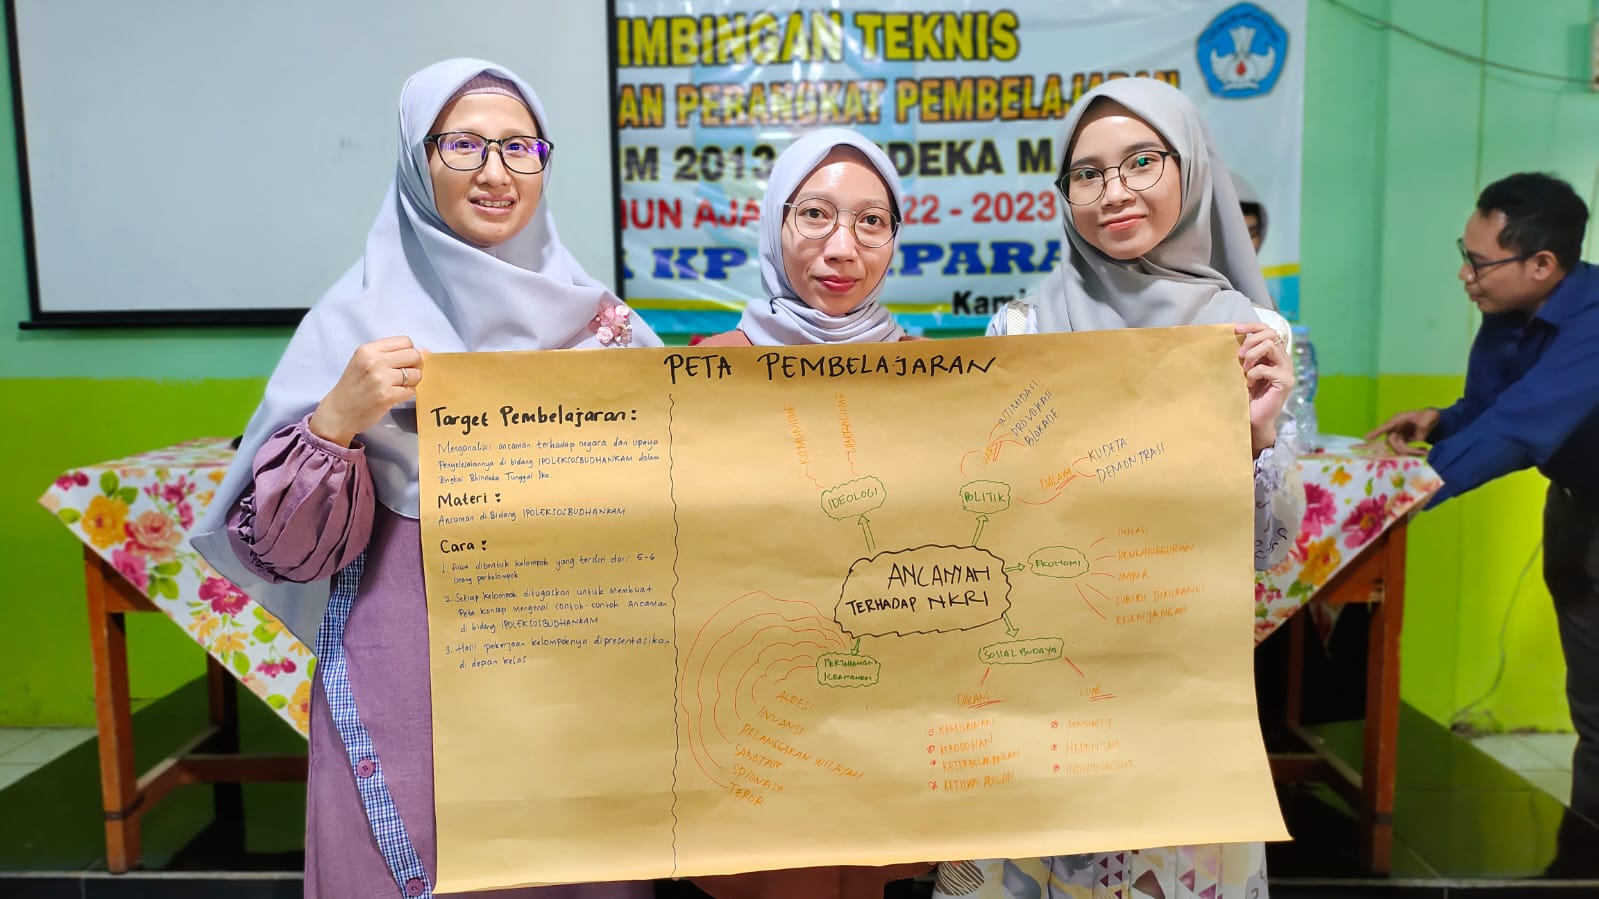 IMBINGAN TEKNIS
AN PERANGKAT PEMBELAJARAN
M 2013 DEKA M
HUN AJA 22 - 2023
KP PARA
Kami
PETA PEMBELAJARAN
Target Pembelajaran:
Menganalisis ancaman terhadap negara dan upaya
Penyelesaiannya di bidang IPOLEKSOSBUDHANKAM dalam
Bingkai Bhinneka Tunggal Ika.
Materi :
Ancaman di Bidang IPOLEKSOSBUDHANKAM
Cara :
1. Siswa dibentuk kelompok yang terdiri dari 5-6
orang perkelompok
2. Setiap kelompok ditugaskan untuk membuat
Peta konsep mengenai contoh-contoh Ancaman
di bidang IPOLEKSOSBUDHANKAM
3. Hasil pekerjaan kelompoknya dipresentasikan
di depan kelas
ANCAMAN
TERHADAP NKRI
IDEOLOGI
KOMUNISME
LIBERALISME
POLITIK
LUAR
INTIMIDASI
PROVOKASI
BLOKADE
DALAM
KUDETA
DEMONTRASI
EKONOMI
INFLASI
PENGANGGURAN
IMPOR
SUBSIDI DIKURANGI
KESENJANGAN
SOSIAL BUDAYA
DALAM
KEMISKINAN
KEBODOHAN
KETERBELAKANGAN
KETIDAK ADILAN
LUAR
KONSUMTIF
HEDONISME
INDIVIDUALISME
PERTAHANAN
KEAMANAN
AGRESI
INVANSI
PELANGGARAN WILAYAH
SABOTASE
SPIONASE
TEROR